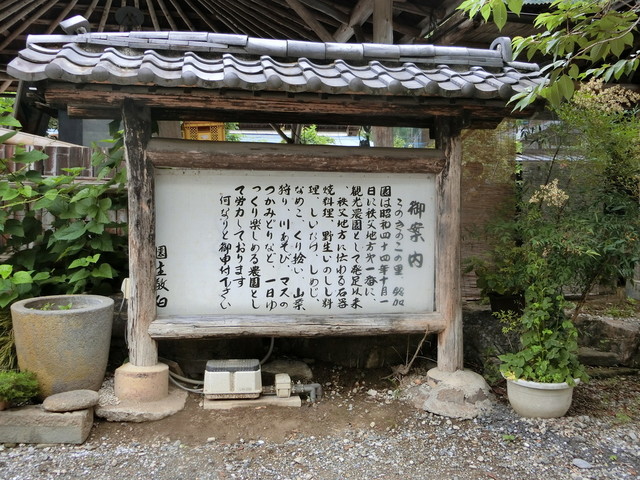 御案内
このきのこの里 鈴加
園は昭和四十四年十月一
日に秩父地方第一番に、
観光農園として発足以来
、秩父地方に伝わる石器
焼料理、野生いのしし料
理、しいたけ、しめじ、
なめこ、くり拾い、山菜
狩り、川あそび、マスの
つかみどりなど、一日ゆ
っくり楽しめる農園とし
て労力しております
何なりと御申付下さい
園主敬白